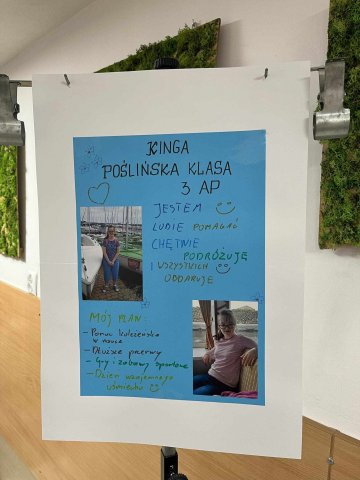 KINGA
POŚLIŃSKA KLASA
3 AP
JESTEM
LUBIĘ POMAGAĆ
CHĘTNIE
PODRÓŻUJĘ
I WSZYSTKICH
ODDARUJĘ
MÓJ PLAN:
- Pomoc koleżeńska
w nauce
- Dłuższe przerwy
- Gry i zabawy sportowe
- Dzień wzajemnego
uśmiechu